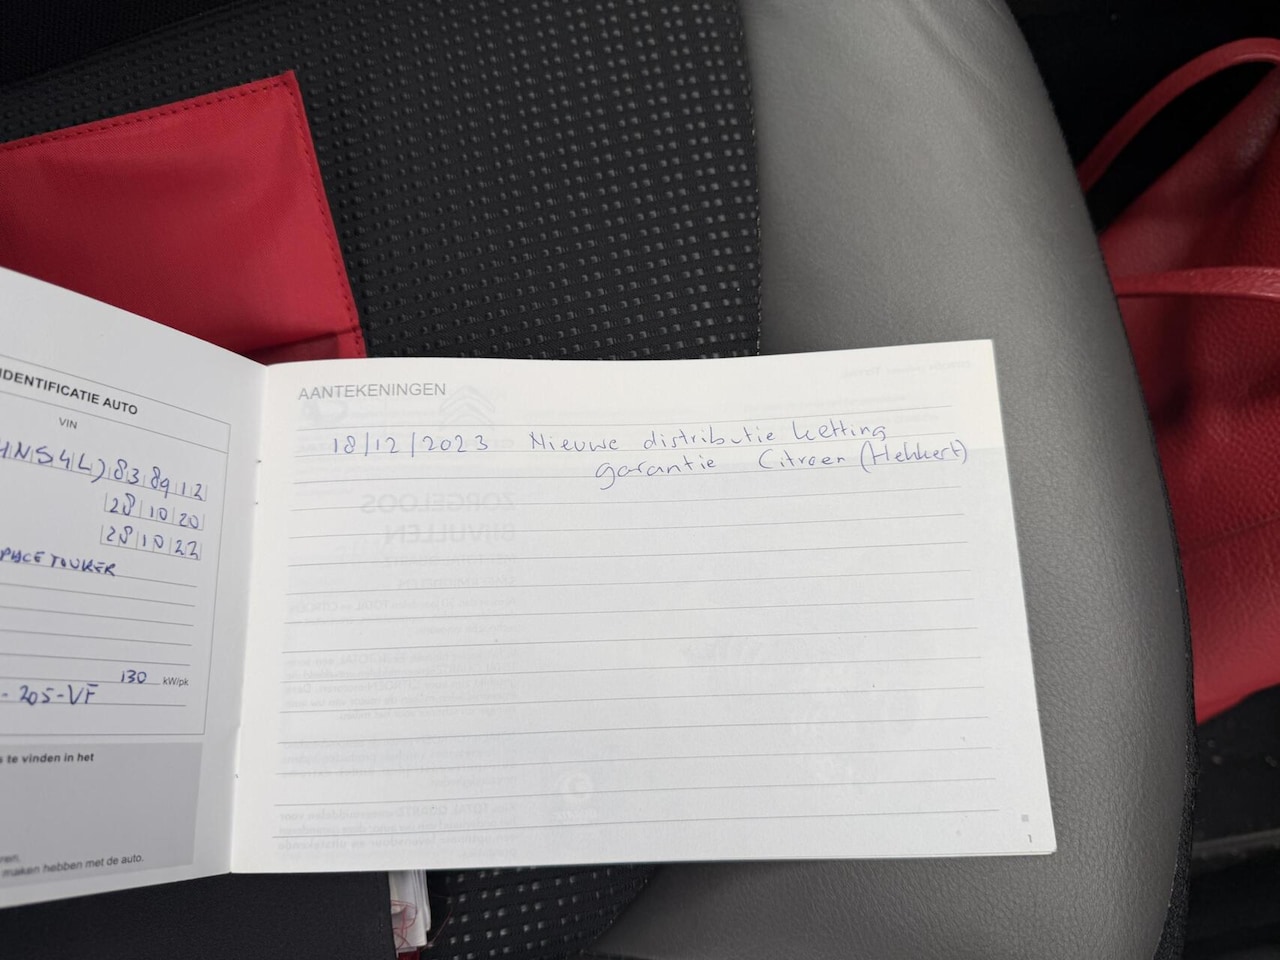 IDENTIFICATIE AUTO
VIN
HNS4LJ838912
28 10 20
28 10 22
SPACE TOURER
130 kW/pk
- 205-VF
s te vinden in het
ren.
maken hebben met de auto.
AANTEKENINGEN
18/12/2023 Nieuwe distributie ketting
garantie Citroen (Hekkert)
ZORGELOOS
BIJVULLEN
1